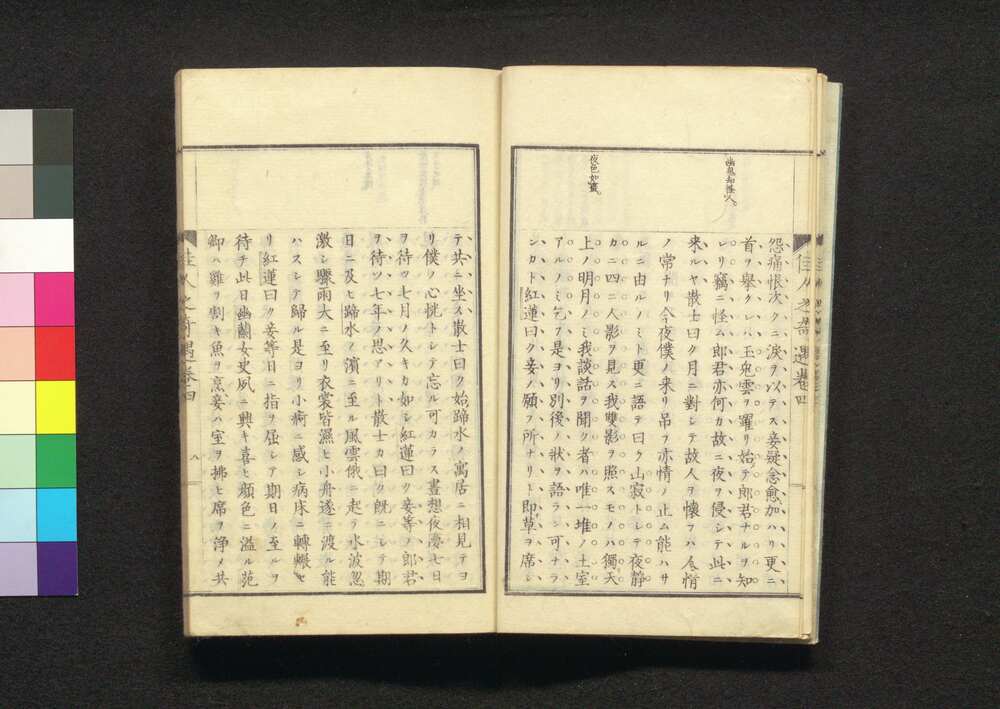 幽鬼却怪人。
夜色如畫。
怨痛恨次クニ涙ヲ以テス妾疑念愈加ハリ更ニ
首ヲ擧クレハ玉兎雲ヲ躍リ始テ郎君ナルヲ知
レリ竊ニ怪ム郎君亦何カ故ニ夜ヲ侵シテ此ニ
來ルヤ散士曰ク月ニ對シテ故人ヲ懷フハ人情
ノ常ナリ今夜僕ノ來リ吊フ亦情ノ止ム能ハサ
ルニ由ルノミト更ニ語テ曰ク山寂トシテ夜靜
カニ四ニ人影ヲ見ス我雙影ヲ照スモノハ獨天
上ノ明月ノミ我談話ヲ聞ク者ハ唯一堆ノ土室
アルノミ乞フ是ヨリ別後ノ狀ヲ語ラン可ナラ
ンカト紅蓮曰ク妾ノ願フ所ナリト即草ヲ席シ
佳人之奇遇卷四
テ共ニ坐ス散士曰ク始蹄水ノ寓居ニ相見テヨ
リ僕ノ心恍トシテ忘ル可カラス晝想夜夢七日
ヲ待ツ七月ノ久キカ如シ紅蓮曰ク妾等ノ郎君
ヲ待ツ七年ノ思アリト散士カ曰ク既ニシテ期
日ニ及ヒ蹄水ノ濱ニ至ル風雲俄ニ起リ水波忽
激シ驟雨大ニ至リ衣裳皆濕ヒ小舟遂ニ渡ル能
ハスシテ歸ル是ヨリ小痾ニ感シ病床ニ轉輾セ
リ紅蓮曰ク妾等日ニ指ヲ屈シテ期日ノ至ルヲ
待チ此日幽蘭女史夙ニ興キ喜ヒ顏色ニ溢ル范
卿ハ雞ヲ割キ魚ヲ烹妾ハ室ヲ拂ヒ席ヲ淨メ共
佳人之奇遇卷四
八